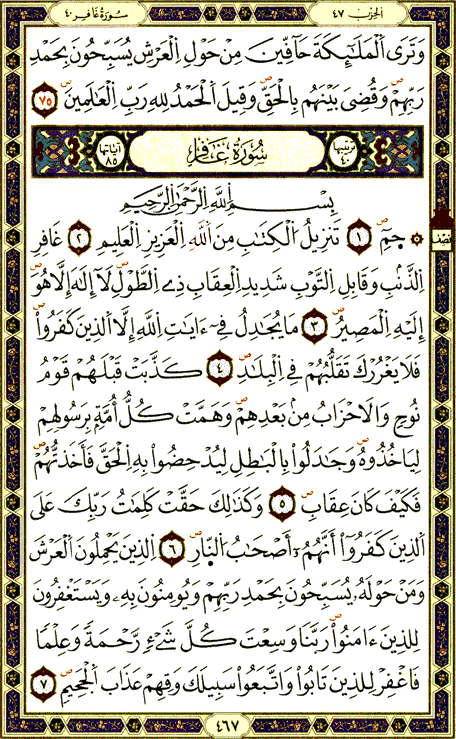 الحِزْب ٤٧
سُورَةُ غَافِر ٤٠
وَتَرَى اَلْمَلَٰٓئِكَةَ حَآفِّينَ مِنْ حَوْلِ اِلْعَرْشِ يُسَبِّحُونَ بِحَمْدِ
رَبِّهِمْ وَقُضِيَ بَيْنَهُم بِالْحَقِّ وَقِيلَ اَلْحَمْدُ لِلهِ رَبِّ اِلْعَٰلَمِينَ ٧٥
ترتيبها ٤٠ سُورَةُ غَافِرٍ آياتها ٨٥
بِسْمِ اِللَّهِ اِلرَّحْمَٰنِ اِلرَّحِيمِ
حَمِٓ ١ تَنزِيلُ اُلْكِتَٰبِ مِنَ اَللَّهِ اِلْعَزِيزِ اِلْعَلِيمِ ٢ غَافِرِ
اِلذَّنۢبِ وَقَابِلِ اِلتَّوْبِ شَدِيدِ اِلْعِقَابِ ذِے اِلطَّوْلِ لَآ إِلَٰهَ إِلَّا هُوَ
إِلَيْهِ اِلْمَصِيرُ ٣ مَا يُجَٰدِلُ فِےٓ ءَايَٰتِ اِللَّهِ إِلَّا اَلذِينَ كَفَرُواْ
فَلَا يَغْرُرْكَ تَقَلُّبُهُمْ فِے اِلْبِلَٰدِ ٤ كَذَّبَتْ قَبْلَهُمْ قَوْمُ
نُوحٍ وَالَاحْزَابُ مِنۢ بَعْدِهِمْ وَهَمَّتْ كُلُّ أُمَّةِۢ بِرَسُولِهِمْ
لِيَاخُذُوهُ وَجَٰدَلُواْ بِالْبَٰطِلِ لِيُدْحِضُواْ بِهِ اِلْحَقَّ فَأَخَذتُّهُمْ
فَكَيْفَ كَانَ عِقَابِ ٥ وَكَذَٰلِكَ حَقَّتْ كَلِمَٰتُ رَبِّكَ عَلَى
اَلذِينَ كَفَرُوٓاْ أَنَّهُمُۥٓ أَصْحَٰبُ اُلنَّارِ ٦ اِلذِينَ يَحْمِلُونَ اَلْعَرْشَ
وَمَنْ حَوْلَهُۥ يُسَبِّحُونَ بِحَمْدِ رَبِّهِمْ وَيُومِنُونَ بِهِۦ وَيَسْتَغْفِرُونَ
لِلذِينَ ءَامَنُواْ رَبَّنَا وَسِعْتَ كُلَّ شَےْءٖ رَّحْمَةً وَعِلْماً
فَاغْفِرْ لِلذِينَ تَابُواْ وَاتَّبَعُواْ سَبِيلَكَ وَقِهِمْ عَذَابَ اَلْجَحِيمِ ٧
٤٦٧